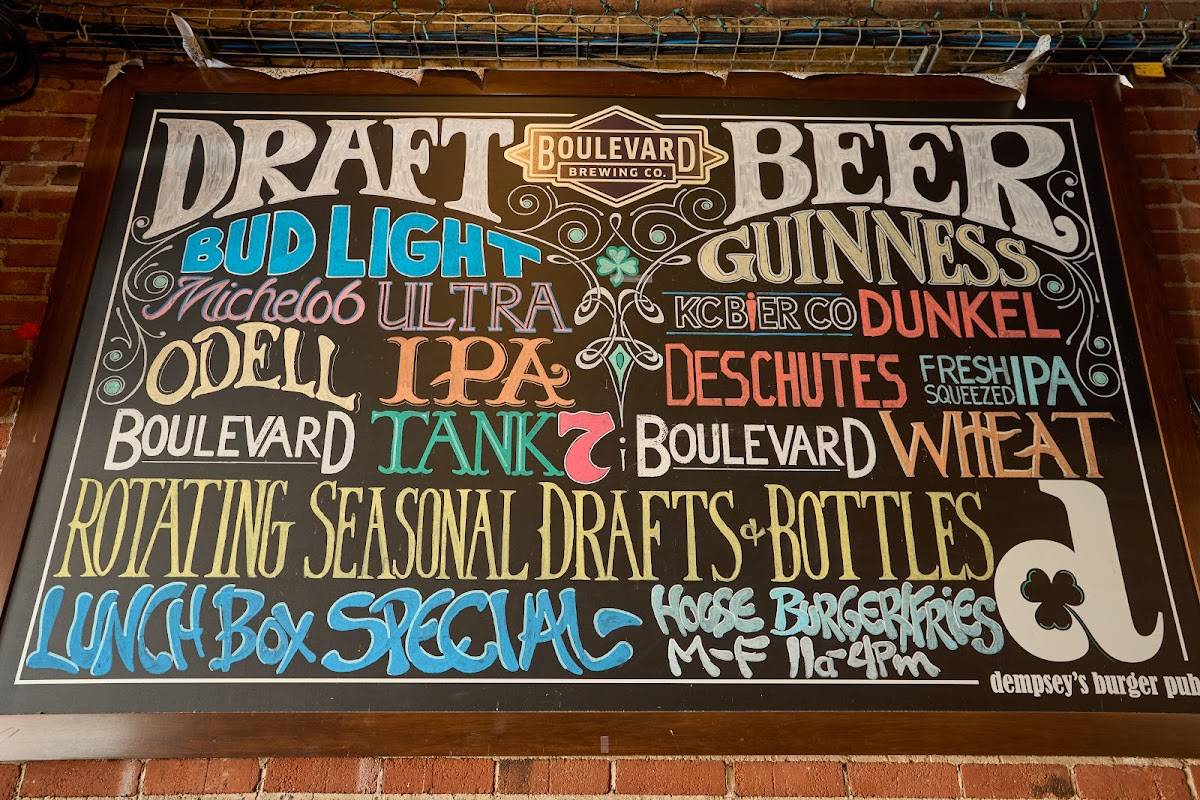 DRAFT BOULEVARD BREWING CO. BEER
BUD LIGHT
GUINNESS
Michelob ULTRA
KC BiER CO DUNKEL
ODELL IPA
DESCHUTES FRESH SQUEEZED IPA
BOULEVARD TANK 7
BOULEVARD WHEAT
ROTATING SEASONAL DRAFTS & BOTTLES
LUNCH BOX SPECIAL - HOUSE BURGER/FRIES
M-F 11a-4Pm
d
dempsey's burger pub